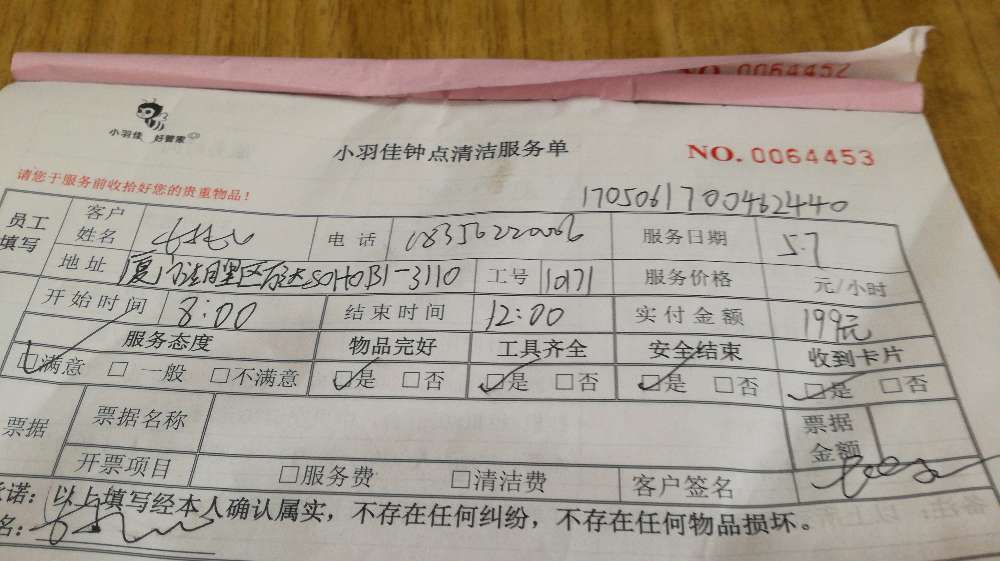 NO. 0064452
小羽佳 好管家
小羽佳钟点清洁服务单
NO. 0064453
请您于服务前收拾好您的贵重物品！
1705061700462440
员工填写 客户姓名 电话 服务日期 5.7
地址 SOHOB1-3110 工号 10171 服务价格 元/小时
开始时间 8:00 结束时间 12:00 实付金额 199元
服务态度 物品完好 工具齐全 安全结束 收到卡片
□满意 □一般 □不满意 □是 □否 □是 □否 □是 □否 □是 □否
票据 票据名称 票据金额
开票项目 □服务费 □清洁费 客户签名
诺：以上填写经本人确认属实，不存在任何纠纷，不存在任何物品损坏。
名：